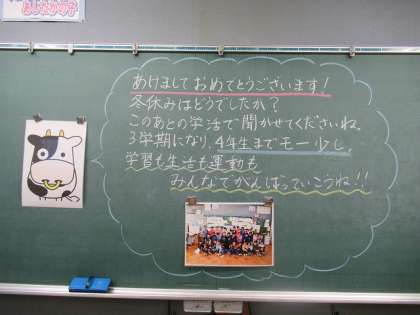 あけましておめでとうございます！
冬休みはどうでしたか？
このあとの学活で聞かせてくださいね。
3学期になり、4年生までモー少し。
学習も生活も運動も
みんなでがんばっていこうね!!